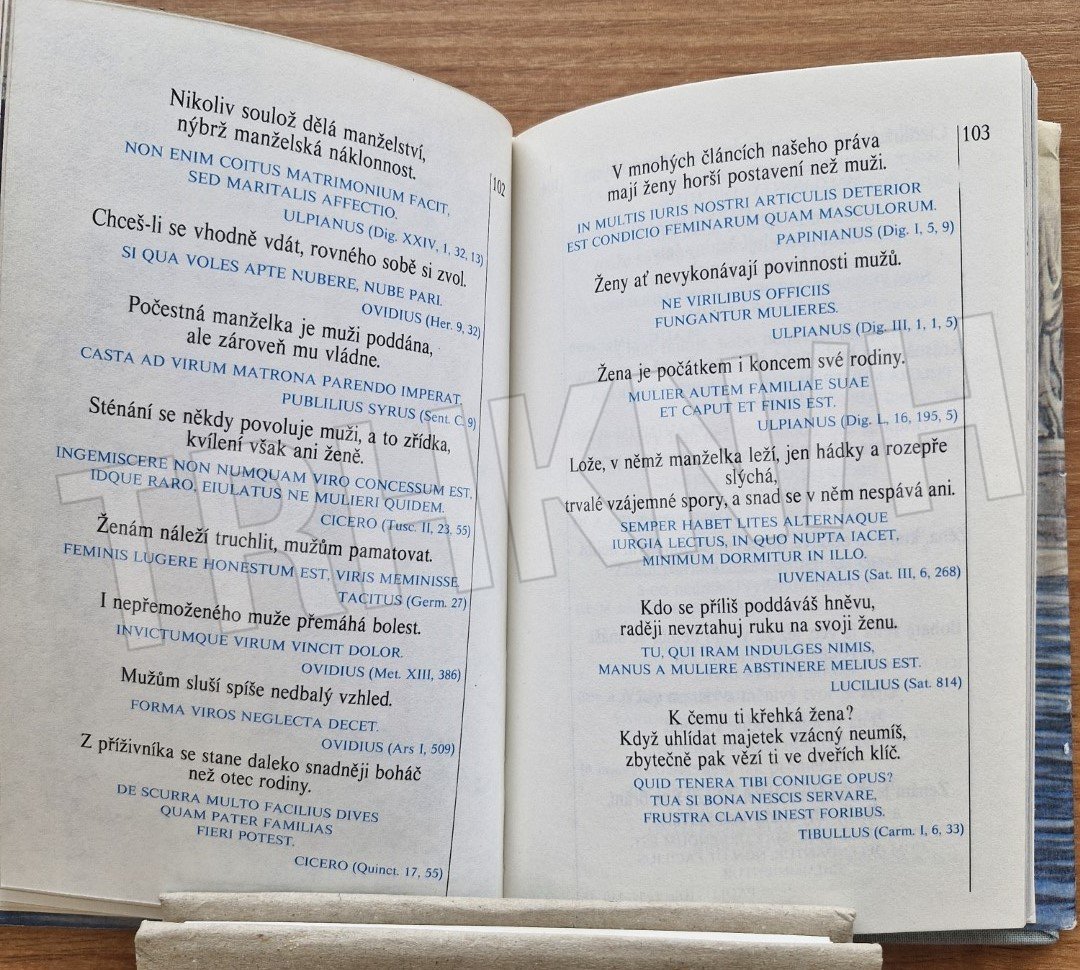 Nikoliv soulož dělá manželství,
nýbrž manželská náklonnost.
NON ENIM COITUS MATRIMONIUM FACIT,
SED MARITALIS AFFECTIO.
ULPIANUS (Dig. XXIV, 1, 32, 13)
Chceš-li se vhodně vdát, rovného sobě si zvol.
SI QUA VOLES APTE NUBERE, NUBE PARI.
OVIDIUS (Her. 9, 32)
Počestná manželka je muži poddána,
ale zároveň mu vládne.
CASTA AD VIRUM MATRONA PARENDO IMPERAT.
PUBLILIUS SYRUS (Sent. C. 9)
Sténání se někdy povoluje muži, a to zřídka,
kvílení však ani ženě.
INGEMISCERE NON NUMQUAM VIRO CONCESSUM EST,
IDQUE RARO, EIULATUS NE MULIERI QUIDEM.
CICERO (Tusc. II, 23, 55)
Ženám náleží truchlit, mužům pamatovat.
FEMINIS LUGERE HONESTUM EST, VIRIS MEMINISSE.
TACITUS (Germ. 27)
I nepřemoženého muže přemáhá bolest.
INVICTUMQUE VIRUM VINCIT DOLOR.
OVIDIUS (Met. XIII, 386)
Mužům sluší spíše nedbalý vzhled.
FORMA VIROS NEGLECTA DECET.
OVIDIUS (Ars I, 509)
Z příživníka se stane daleko snadněji boháč
než otec rodiny.
DE SCURRA MULTO FACILIUS DIVES
QUAM PATER FAMILIAS
FIERI POTEST.
CICERO (Quinct. 17, 55)
102
103
V mnohých článcích našeho práva
mají ženy horší postavení než muži.
IN MULTIS IURIS NOSTRI ARTICULIS DETERIOR
EST CONDICIO FEMINARUM QUAM MASCULORUM.
PAPINIANUS (Dig. I, 5, 9)
Ženy ať nevykonávají povinnosti mužů.
NE VIRILIBUS OFFICIIS
FUNGANTUR MULIERES.
ULPIANUS (Dig. III, 1, 1, 5)
Žena je počátkem i koncem své rodiny.
MULIER AUTEM FAMILIAE SUAE
ET CAPUT ET FINIS EST.
ULPIANUS (Dig. L, 16, 195, 5)
Lože, v němž manželka leží, jen hádky a rozepře
slýchá,
trvalé vzájemné spory, a snad se v něm nespává ani.
SEMPER HABET LITES ALTERNAQUE
IURGIA LECTUS, IN QUO NUPTA IACET,
MINIMUM DORMITUR IN ILLO.
IUVENALIS (Sat. III, 6, 268)
Kdo se příliš poddáváš hněvu,
raději nevztahuj ruku na svoji ženu.
TU, QUI IRAM INDULGES NIMIS,
MANUS A MULIERE ABSTINERE MELIUS EST.
LUCILIUS (Sat. 814)
K čemu ti křehká žena?
Když uhlídat majetek vzácný neumíš,
zbytečně pak vězí ti ve dveřích klíč.
QUID TENERA TIBI CONIUGE OPUS?
TUA SI BONA NESCIS SERVARE,
FRUSTRA CLAVIS INEST FORIBUS.
TIBULLUS (Carm. I, 6, 33)